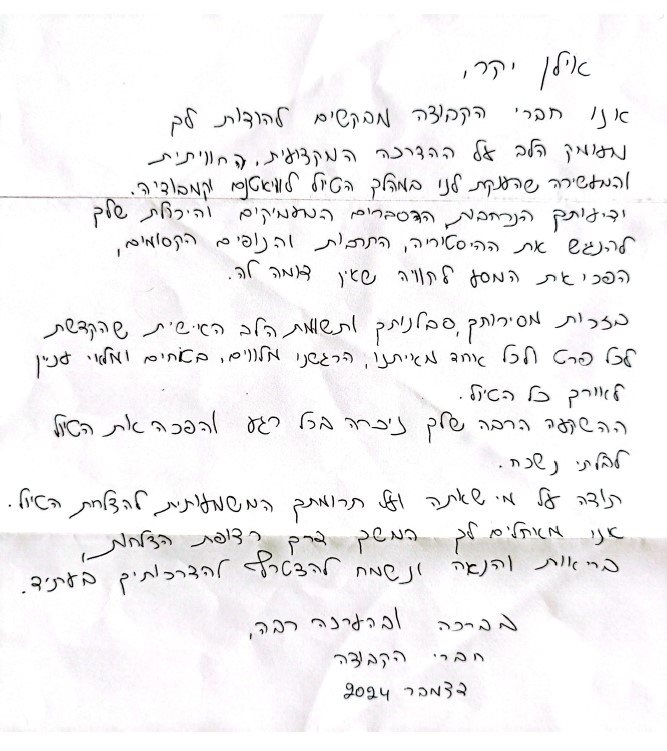 אילן יקר,
אנו חברי הקבוצה מבקשים להודות לך
מעומק הלב על ההדרכה המקצועית, החוויתית
והמעשירה שהענקת לנו במהלך הטיול לוויאטנם וקמבודיה.
ידיעותיך הנרחבות, ההסברים המעמיקים והיכולת שלך
להנגיש את ההיסטוריה, התרבות והנופים הקסומים,
הפכו את המסע לחוויה שאין דומה לה.
בזכות מסירותך, סבלנותך ותשומת הלב האישית שהקדשת
לכל פרט ולכל אחד מאיתנו, הרגשנו מלווים, בטוחים ומלאי ענין
לאורך כל הטיול.
ההשקעה הרבה שלך ניכרה בכל רגע והפכה את הטיול
לבלתי נשכח.
תודה על מי שאתה ועל תרומתך המשמעותית להצלחת הטיול.
אנו מאחלים לך המשך דרך רצופת הצלחות,
בריאות והנאה ונשמח להצטרף להדרכותיך בעתיד.
בברכה ובהערכה רבה,
חברי הקבוצה
דצמבר 2024